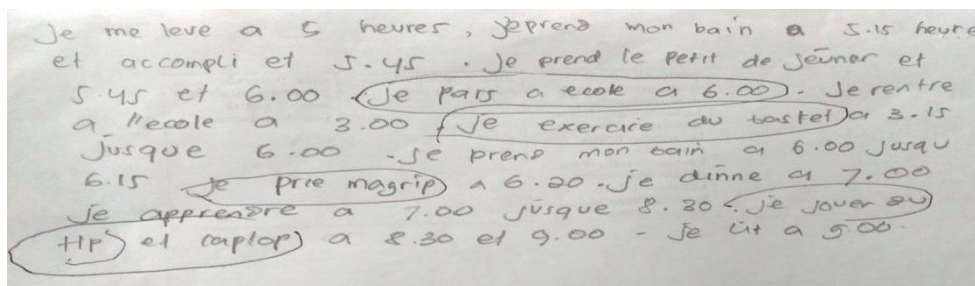 Je me leve a 5 heures, je prend mon bain a 5.15 heure
et accompli et 5.45. Je prend le petit de jeûner et
5.45 et 6.00. Je pars a ecole a 6.00. Je rentre
a l'ecole a 3.00. Je exercice du basket a 3.15
Jusque 6.00 - Je prend mon bain a 6.00 jusqu
6.15 Je prie magrip a 6.20. Je dinne a 7.00
je apprendre a 7.00 jusque 8.30. je jouer du
Hp et laptop a 8.30 et 9.00 - je lit a 9.00.